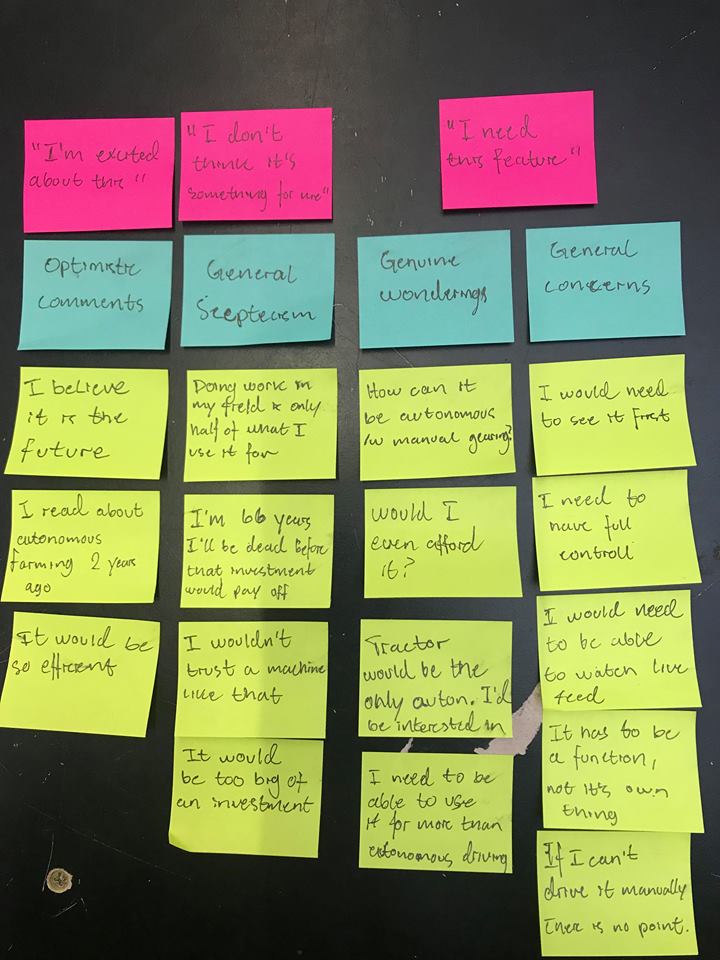 "I'm excited
about this"
"I don't
think it's
something for me"
"I need
this feature"
Optimistic
comments
General
Scepticism
Genuine
wonderings
General
concerns
I believe
it is the
future
I read about
autonomous
farming 2 years
ago
It would be
so efficient
Doing work in
my field is only
half of what I
use it for
I'm 66 years
I'll be dead before
that investment
would pay off
I wouldn't
trust a machine
like that
It would
be too big of
an investment
How can it
be autonomous
w manual gearing?
would I
even afford
it?
Tractor
would be the
only auton. I'd
be interested in
I need to be
able to use
it for more than
autonomous driving
I would need
to see it first
I need to
have full
controll
I would need
to be able
to watch live
feed
It has to be
a function,
not it's own
thing
If I can't
drive it manually
there is no point.